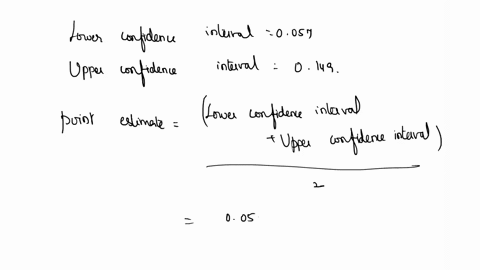 Lower confidence interval = 0.057
Upper confidence interval = 0.149.
point estimate = (Lower confidence interval
+ Upper confidence interval)
2
= 0.05